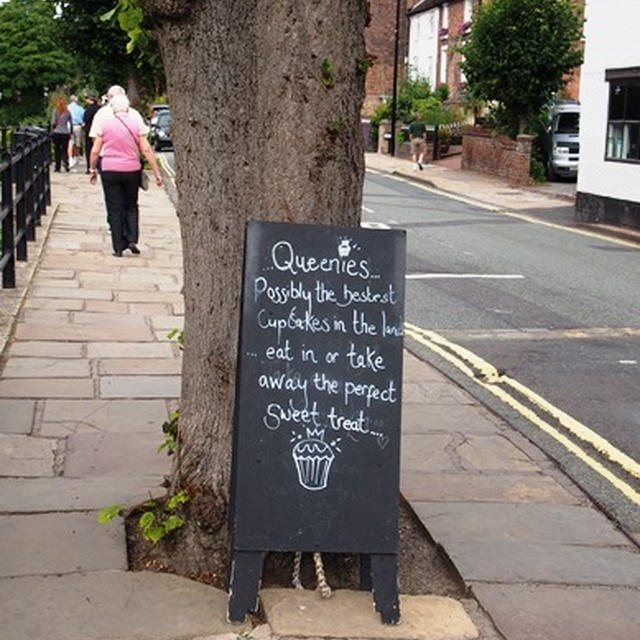 ...Queenies...
Possibly the bestest
Cupcakes in the land
... eat in or take
away the perfect
Sweet treat...